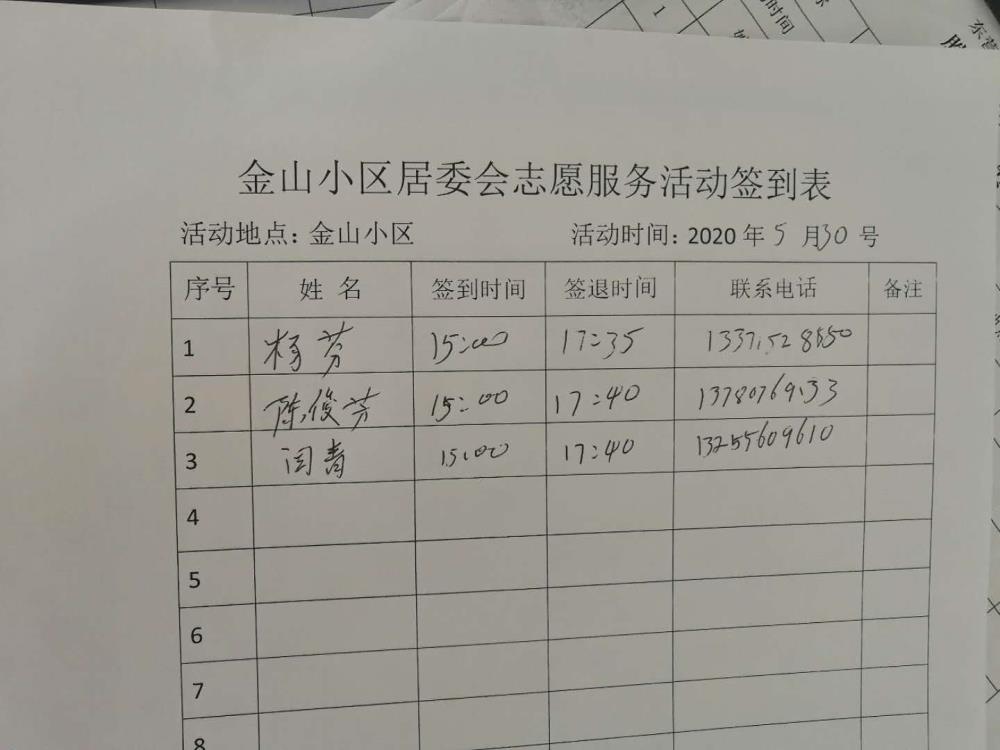 时间
1
东营
金山小区居委会志愿服务活动签到表
活动地点：金山小区 活动时间：2020 年 5 月30 号
序号 姓 名 签到时间 签退时间 联系电话 备注
1 杨芳 15:00 17:35
2 陈俊芳 15:00 17:40
3 闫青 15:00 17:40 13255609610
4
5
6
7
8